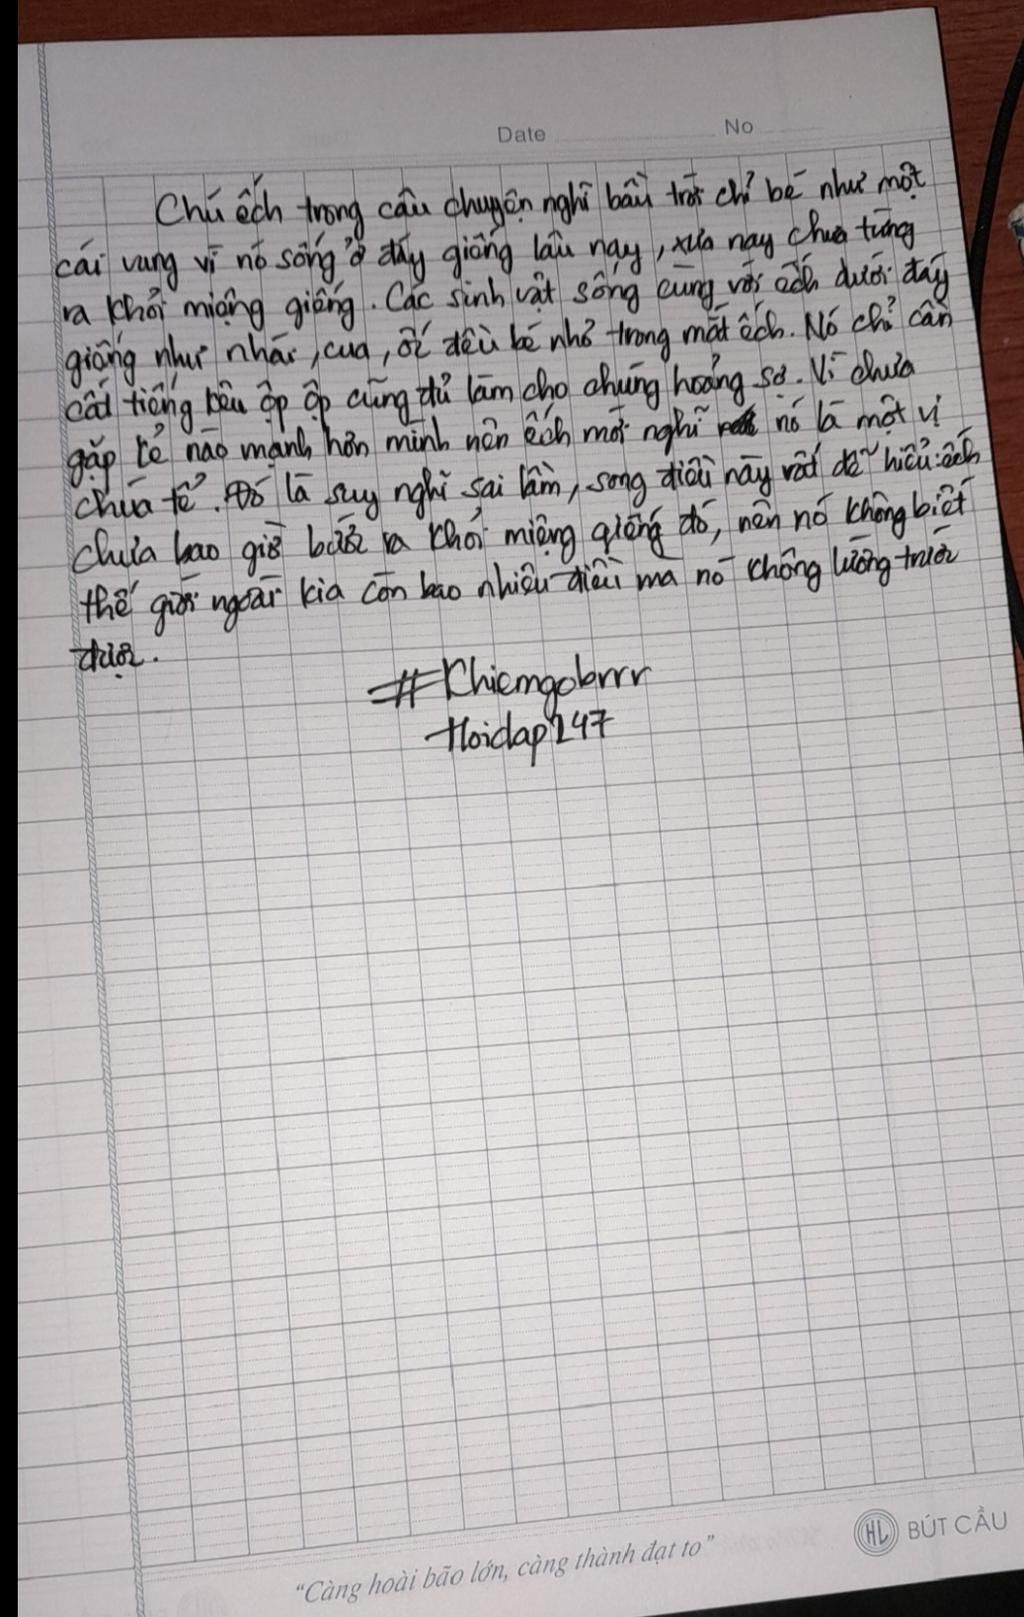 Date No
Chú ếch trong câu chuyện nghĩ bầu trời chỉ bé như một
cái vung vì nó sống ở đáy giếng lâu nay, xưa nay chưa từng
ra khỏi miệng giếng. Các sinh vật sống cùng với ếch dưới đáy
giếng như nhái, cua, ốc đều bé nhỏ trong mắt ếch. Nó chỉ cần
cất tiếng kêu ộp ộp cũng đủ làm cho chúng hoảng sợ. Vì chưa
gặp kẻ nào mạnh hơn mình nên ếch mới nghĩ nó là một vị
chúa tể. Đó là suy nghĩ sai lầm, song điều này rất dễ hiểu: ếch
chưa bao giờ bước ra khỏi miệng giếng đó, nên nó không biết
thế giới ngoài kia còn bao nhiêu điều mà nó không lường trước
được.
#Khiemgobrrr
Hoidap247
"Càng hoài bão lớn, càng thành đạt to"
HL BÚT CẦU